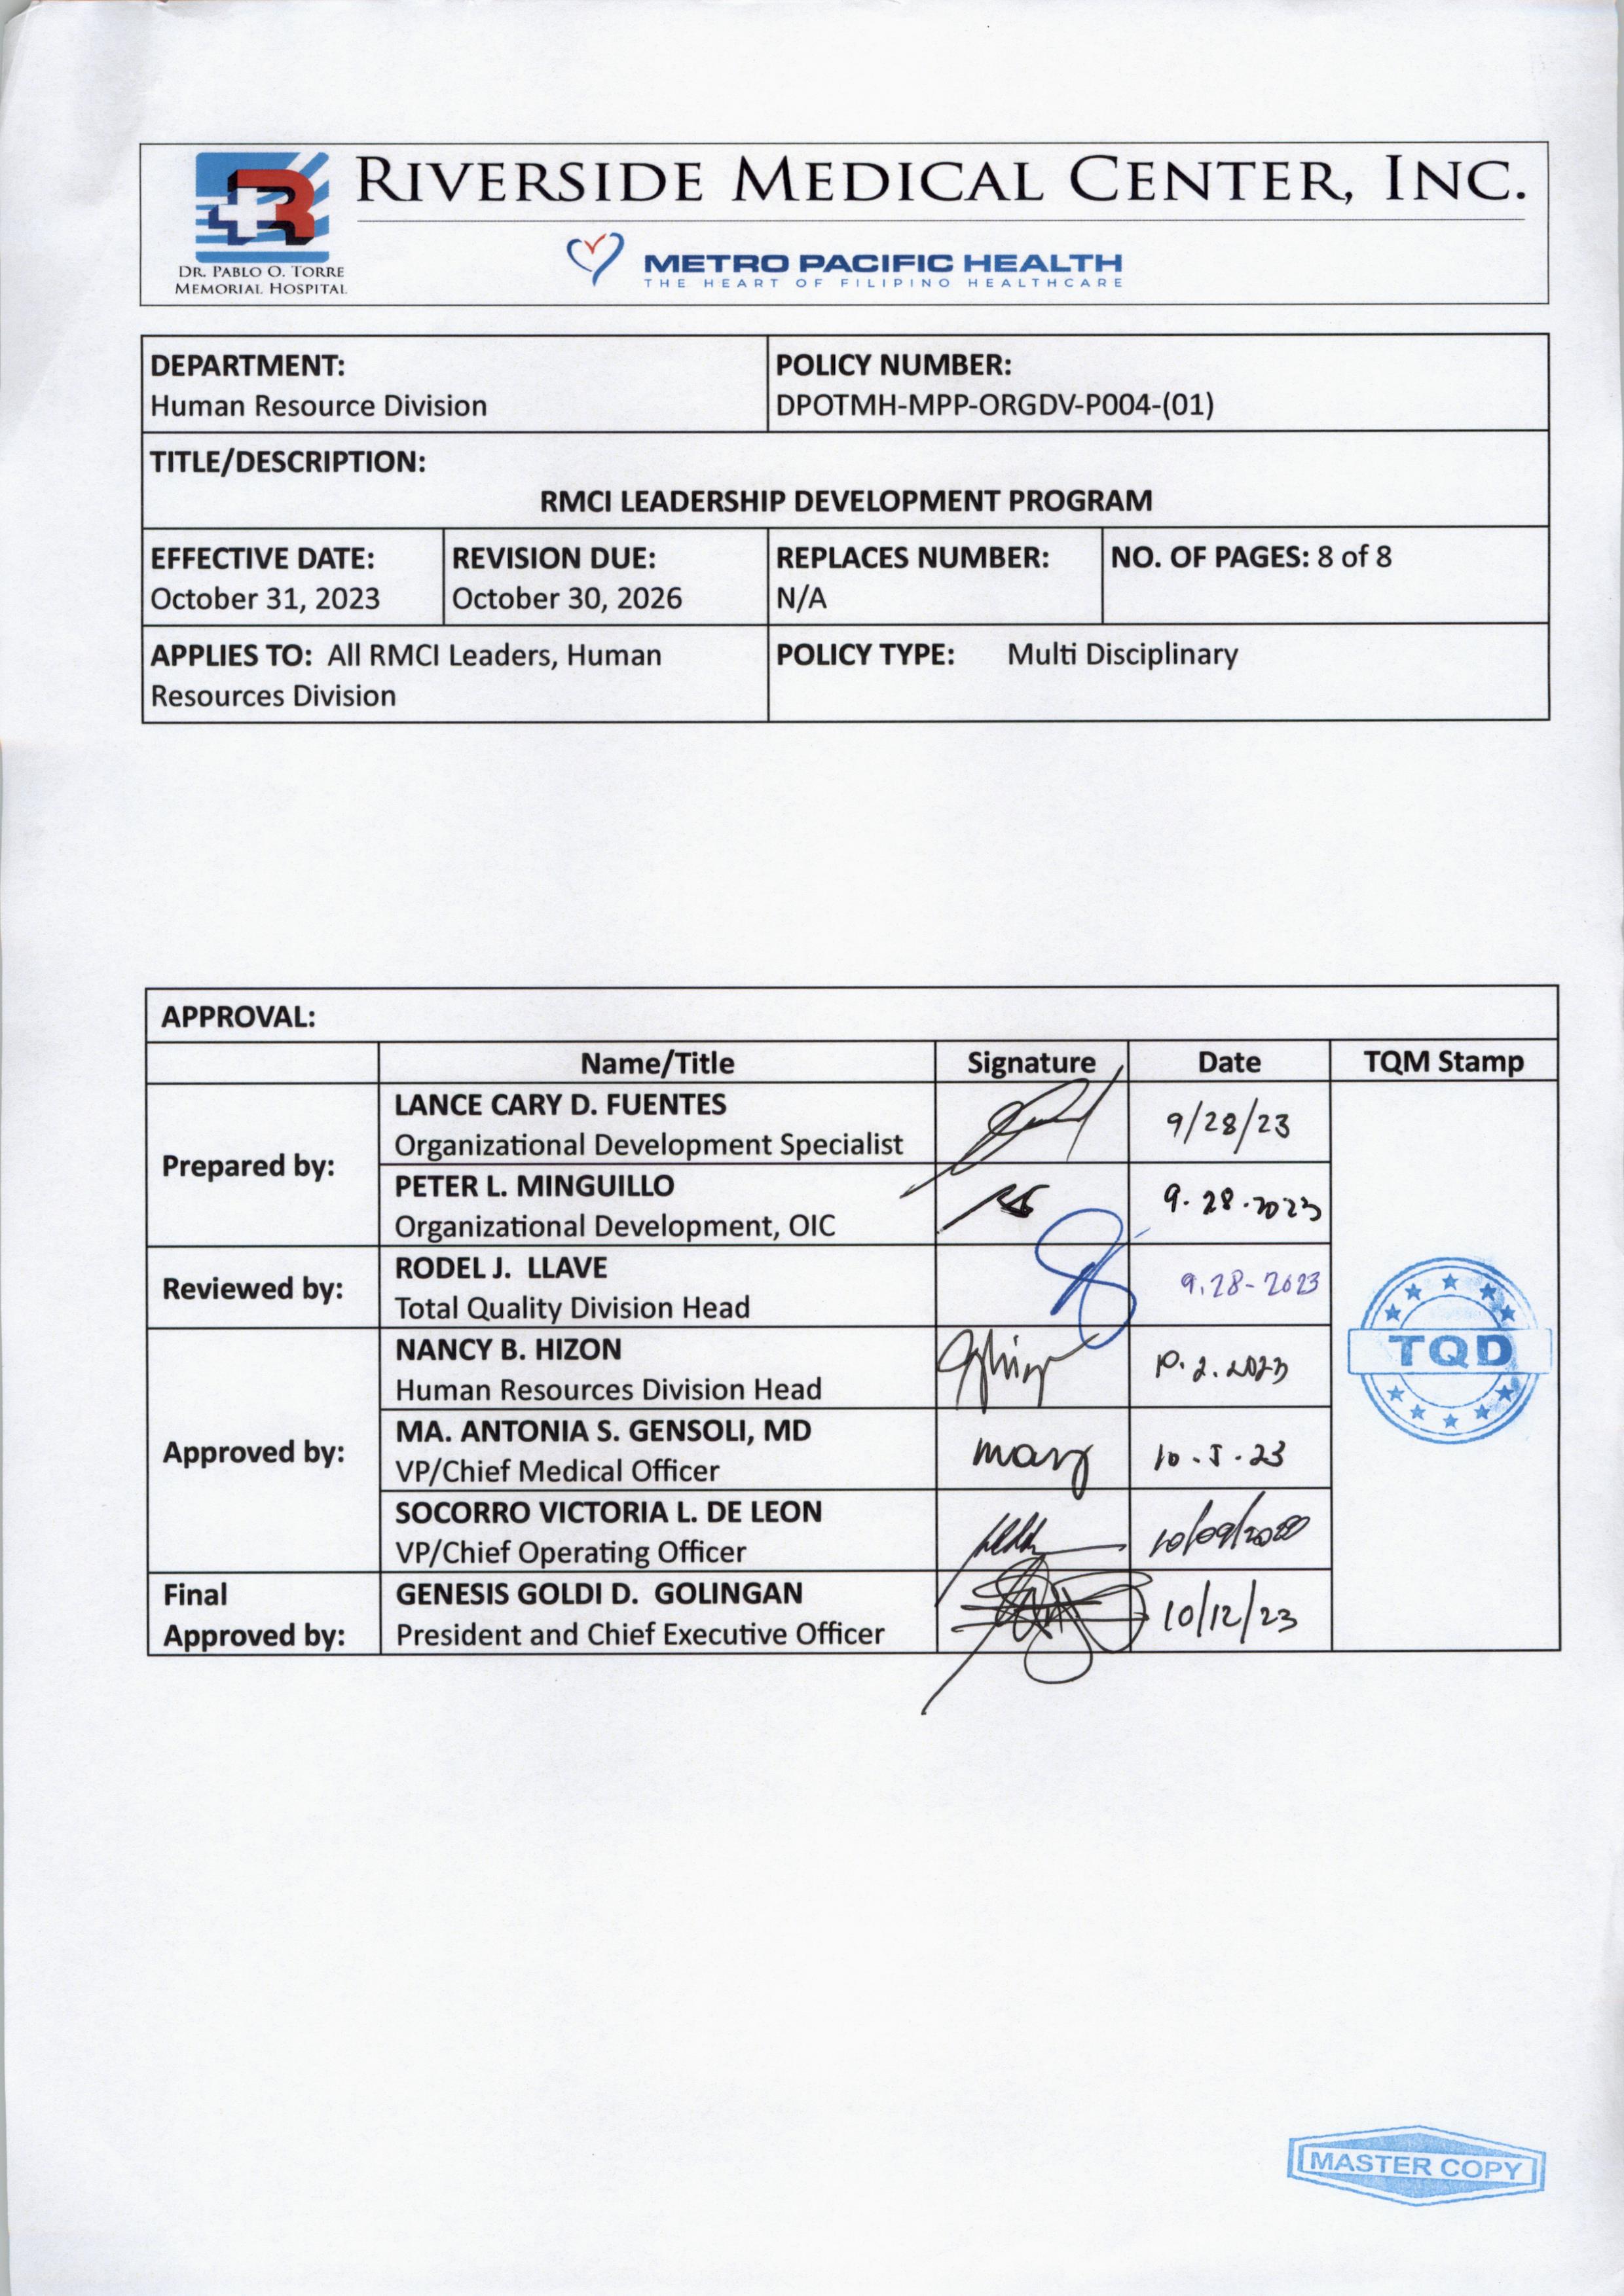 RIVERSIDE MEDICAL CENTER, INC.
DR. PABLO O. TORRE
MEMORIAL HOSPITAL
METRO PACIFIC HEALTH
THE HEART OF FILIPINO HEALTHCARE
DEPARTMENT:
Human Resource Division
POLICY NUMBER:
DPOTMH-MPP-ORGDV-P004-(01)
TITLE/DESCRIPTION:
RMCI LEADERSHIP DEVELOPMENT PROGRAM
EFFECTIVE DATE:
October 31, 2023
REVISION DUE:
October 30, 2026
REPLACES NUMBER:
N/A
NO. OF PAGES: 8 of 8
APPLIES TO: All RMCI Leaders, Human
Resources Division
POLICY TYPE: Multi Disciplinary
APPROVAL:
Name/Title Signature Date TQM Stamp
Prepared by:
LANCE CARY D. FUENTES
Organizational Development Specialist
9/28/23
PETER L. MINGUILLO
Organizational Development, OIC
9.28.2023
Reviewed by:
RODEL J. LLAVE
Total Quality Division Head
9.28-2023
Approved by:
NANCY B. HIZON
Human Resources Division Head
10.2.2023
MA. ANTONIA S. GENSOLI, MD
VP/Chief Medical Officer
10.5.23
SOCORRO VICTORIA L. DE LEON
VP/Chief Operating Officer
Final
Approved by:
GENESIS GOLDI D. GOLINGAN
President and Chief Executive Officer
10/12/23
TQD
MASTER COPY